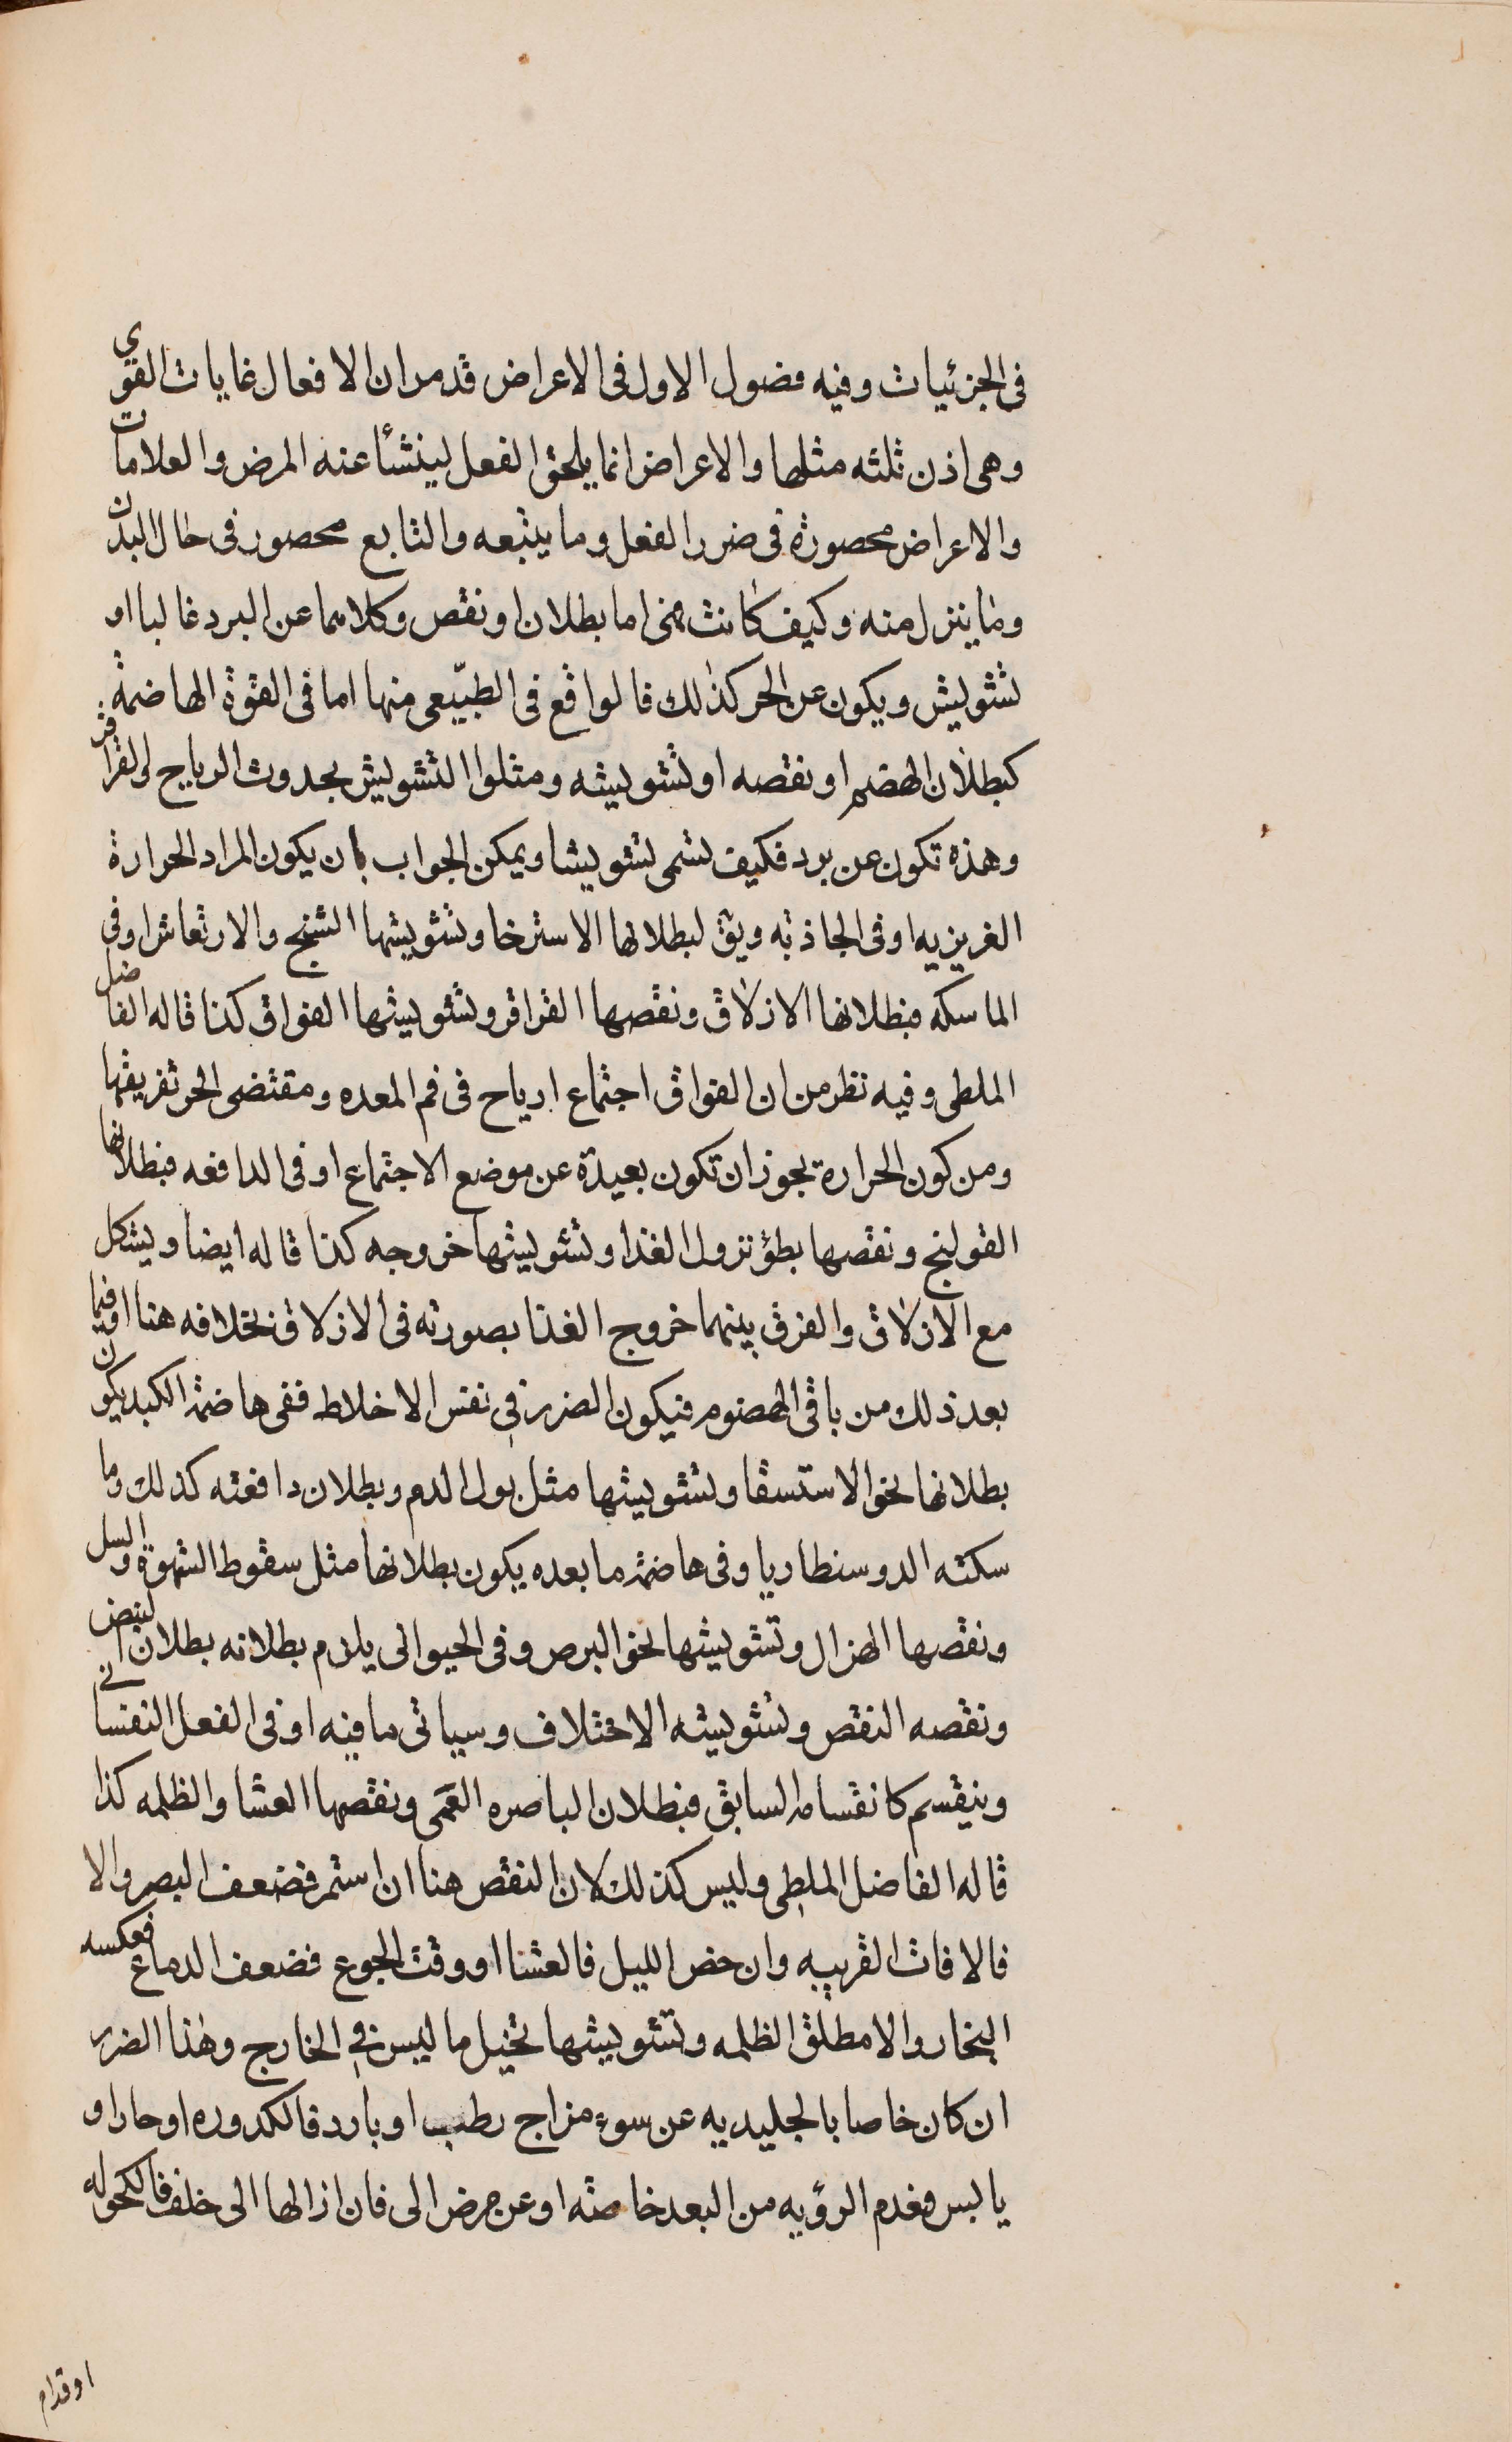 فى الجزئيات وفيه فصول الاول فى الاعراض قد مر ان الافعال غايات القوى
وهى اذن ثلثه مثلها والاعراض انما يلحق الفعل لينشأ عنه المرض والعلامات
والاعراض محصورة فى ضرر الفعل وما يتبعه والتابع محصور فى حال البدن
وما ينزل منه وكيف كانت فهى اما بطلان او نقص وكلاهما عن البرد غالبا او
تشويش ويكون عن الحر كذلك فالواقع فى الطبيعى منها اما فى القوة الهاضمة
كبطلان الهضم او نقصه او تشويشه ومثلوا التشويش بحدوث الرياح والقراقر
وهذه تكون عن برد فكيف تسمى تشويشا ويمكن الجواب بان يكون المراد الحرارة
الغريزيه او فى الجاذبه ويق لبطلانها الاسترخا وتشويشها التشنج والارتعاش او فى
الماسكه فبطلانها الازلاق ونقصها القراقر وتشويشها الفواق كذا قاله الفاضل
الملطى وفيه نظر من ان الفواق اجتماع ارياح فى فم المعده ومقتضى الحر تفريقها
ومن كون الحرارة يجوز ان تكون بعيدة عن موضع الاجتماع او فى الدافعه فبطلانها
القولنج ونقصها بطؤ نزول الغذا وتشويشها خروجه كذا قاله ايضا ويشكل
مع الازلاق والفرق بينهما خروج الغذا بصورته فى الازلاق بخلافه هنا او فيما
بعد ذلك من باقى الهضوم فيكون الضرر فى نفس الاخلاط ففى هاضمة الكبد يكون
بطلانها نحو الاستسقا وتشويشها مثل بول الدم وبطلان دافعته كذلك وما
سكته الدوسنطاريا وفى هاضمة ما بعده يكون بطلانها مثل سقوط الشهوة والسل
ونقصها الهزال وتشويشها نحو البرص وفى الحيوانى يلزم بطلانه بطلان النبض
ونقصه النقص وتشويشه الاختلاف وسياتى ما فيه او فى الفعل النفسانى
وينقسم كانقسام السابق فبطلان الباصره العمى ونقصها العشا والظلمه كذا
قاله الفاضل الملطى وليس كذلك لان النقص هنا ان استمر فضعف البصر والا
فالافات القريبه وان خص الليل فالعشا او وقت الجوع فضعف الدماغ فعكسه
البخار والا مطلق الظلمه وتشويشها تخيل ما ليس فى الخارج وهذا الضرر
ان كان خاصا بالجليديه عن سوء مزاج رطب او بارد فالكدوره او حار او
يابس فعدم الرؤيه من البعد خاصته او عن مرض الى فان ازالها الى خلف فالكحوله
او قدام